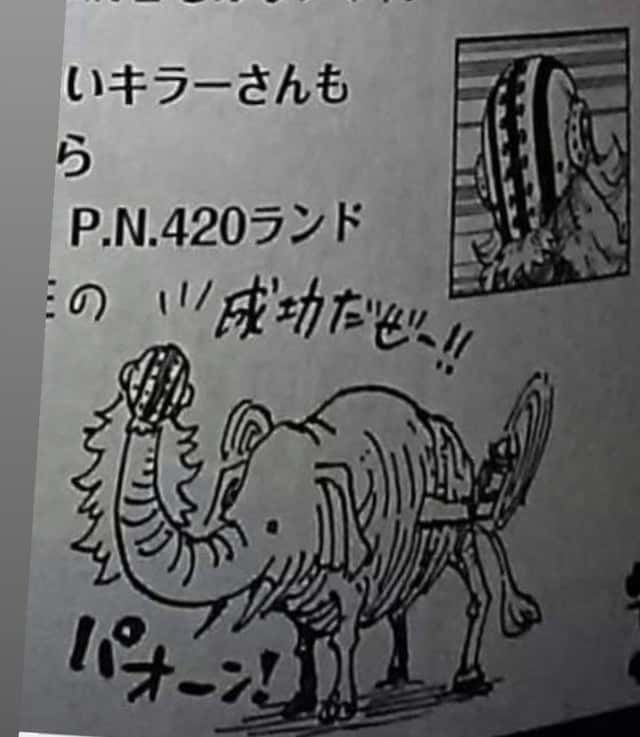 いキラーさんも
ら
P.N.420ランド
の
成功だぜー!!
パオーン!